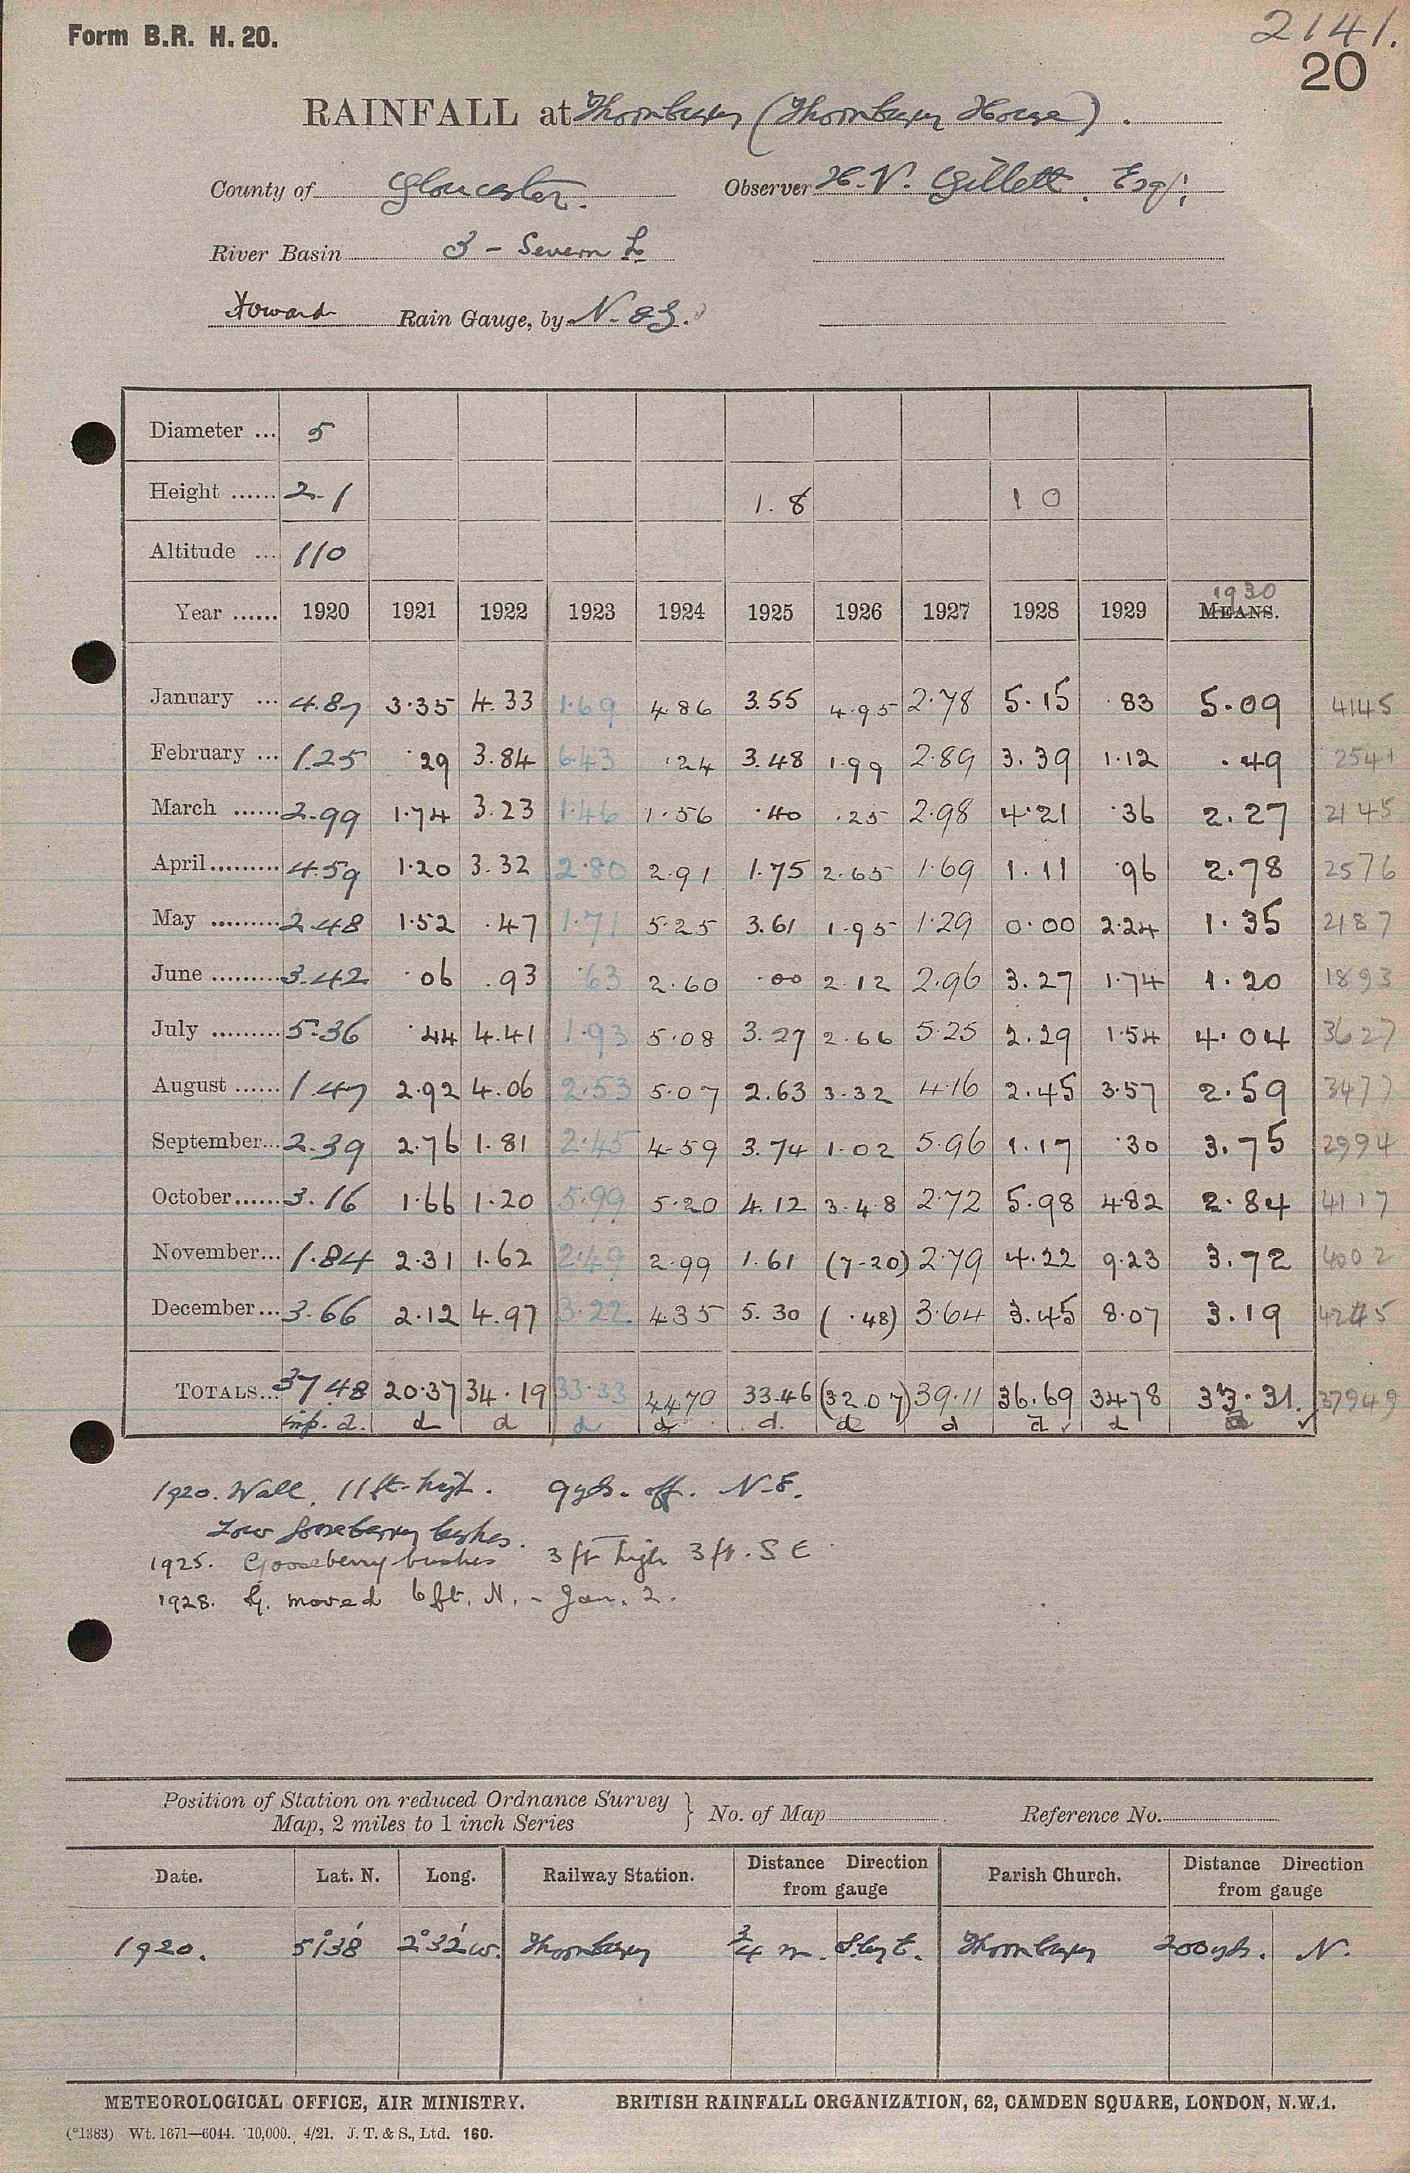 Form B.R. H. 20.
2141.
20
RAINFALL at Thornbury (Thornbury House).
County of Gloucester. Observer H. V. Gillett, Esq.,
River Basin 3 - Severn L
Howard Rain Gauge, by N. & Z.
Diameter ... 5
Height ...... 2.1 1.8 10
Altitude ... 110
1930
Year ...... 1920 1921 1922 1923 1924 1925 1926 1927 1928 1929 MEANS.
January ... 4.87 3.35 4.33 1.69 4.86 3.55 4.95 2.78 5.15 .83 5.09 4145
February ... 1.25 .29 3.84 6.43 .24 3.48 1.99 2.89 3.39 1.12 .49 2541
March ...... 2.99 1.74 3.23 1.46 1.56 .40 .25 2.98 4.21 .36 2.27 2145
April ......... 4.59 1.20 3.32 2.80 2.91 1.75 2.65 1.69 1.11 .96 2.78 2576
May ......... 2.48 1.52 .47 1.71 5.25 3.61 1.95 1.29 0.00 2.24 1.35 2187
June ......... 3.42 .06 .93 .63 2.60 .00 2.12 2.96 3.27 1.74 1.20 1893
July ......... 5.36 .44 4.41 1.93 5.08 3.27 2.66 5.25 2.29 1.54 4.04 3627
August ...... 1.47 2.92 4.06 2.53 5.07 2.63 3.32 4.16 2.45 3.57 2.59 3477
September... 2.39 2.76 1.81 2.45 4.59 3.74 1.02 5.96 1.17 .30 3.75 2994
October...... 3.16 1.66 1.20 5.99 5.20 4.12 3.48 2.72 5.98 4.82 2.84 4117
November... 1.84 2.31 1.62 2.49 2.99 1.61 (7.20) 2.79 4.22 9.23 3.72 4002
December... 3.66 2.12 4.97 3.22 4.35 5.30 (.48) 3.64 3.45 8.07 3.19 4245
TOTALS... 37.48 20.37 34.19 33.33 44.70 33.46 (32.07) 39.11 36.69 34.78 33.31 37949
inp. d. d d d d d. d d d d
1920. Wall, 11 ft. high. 9 yds. off. N.E.
Low Gooseberry bushes.
1925. Gooseberry bushes 3 ft high 3 ft. S E
1928. G. moved 6 ft. N. - Jan. 2.
Position of Station on reduced Ordnance Survey Map, 2 miles to 1 inch Series } No. of Map Reference No.
Date. Lat. N. Long. Railway Station. Distance Direction from gauge Parish Church. Distance Direction from gauge
1920. 51°38' 2°32' W. Thornbury 3/4 m. S. by E. Thornbury 200 yds. N.
METEOROLOGICAL OFFICE, AIR MINISTRY. BRITISH RAINFALL ORGANIZATION, 62, CAMDEN SQUARE, LONDON, N.W.1.
(*1383) Wt. 1671—6044. 10,000. 4/21. J. T. & S., Ltd. 160.